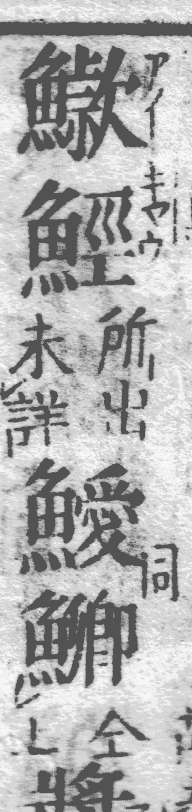 アイキヤウ
所出
未詳
鱫鱜
同
仝
上